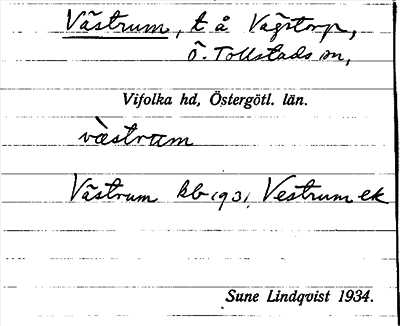 Västrum, t å Vagstorp,
Ö. Tollstads sn,
Vifolka hd, Östergötl. län.
væ̀strum
Västrum kb 1931, Vestrum ek
Sune Lindqvist 1934.